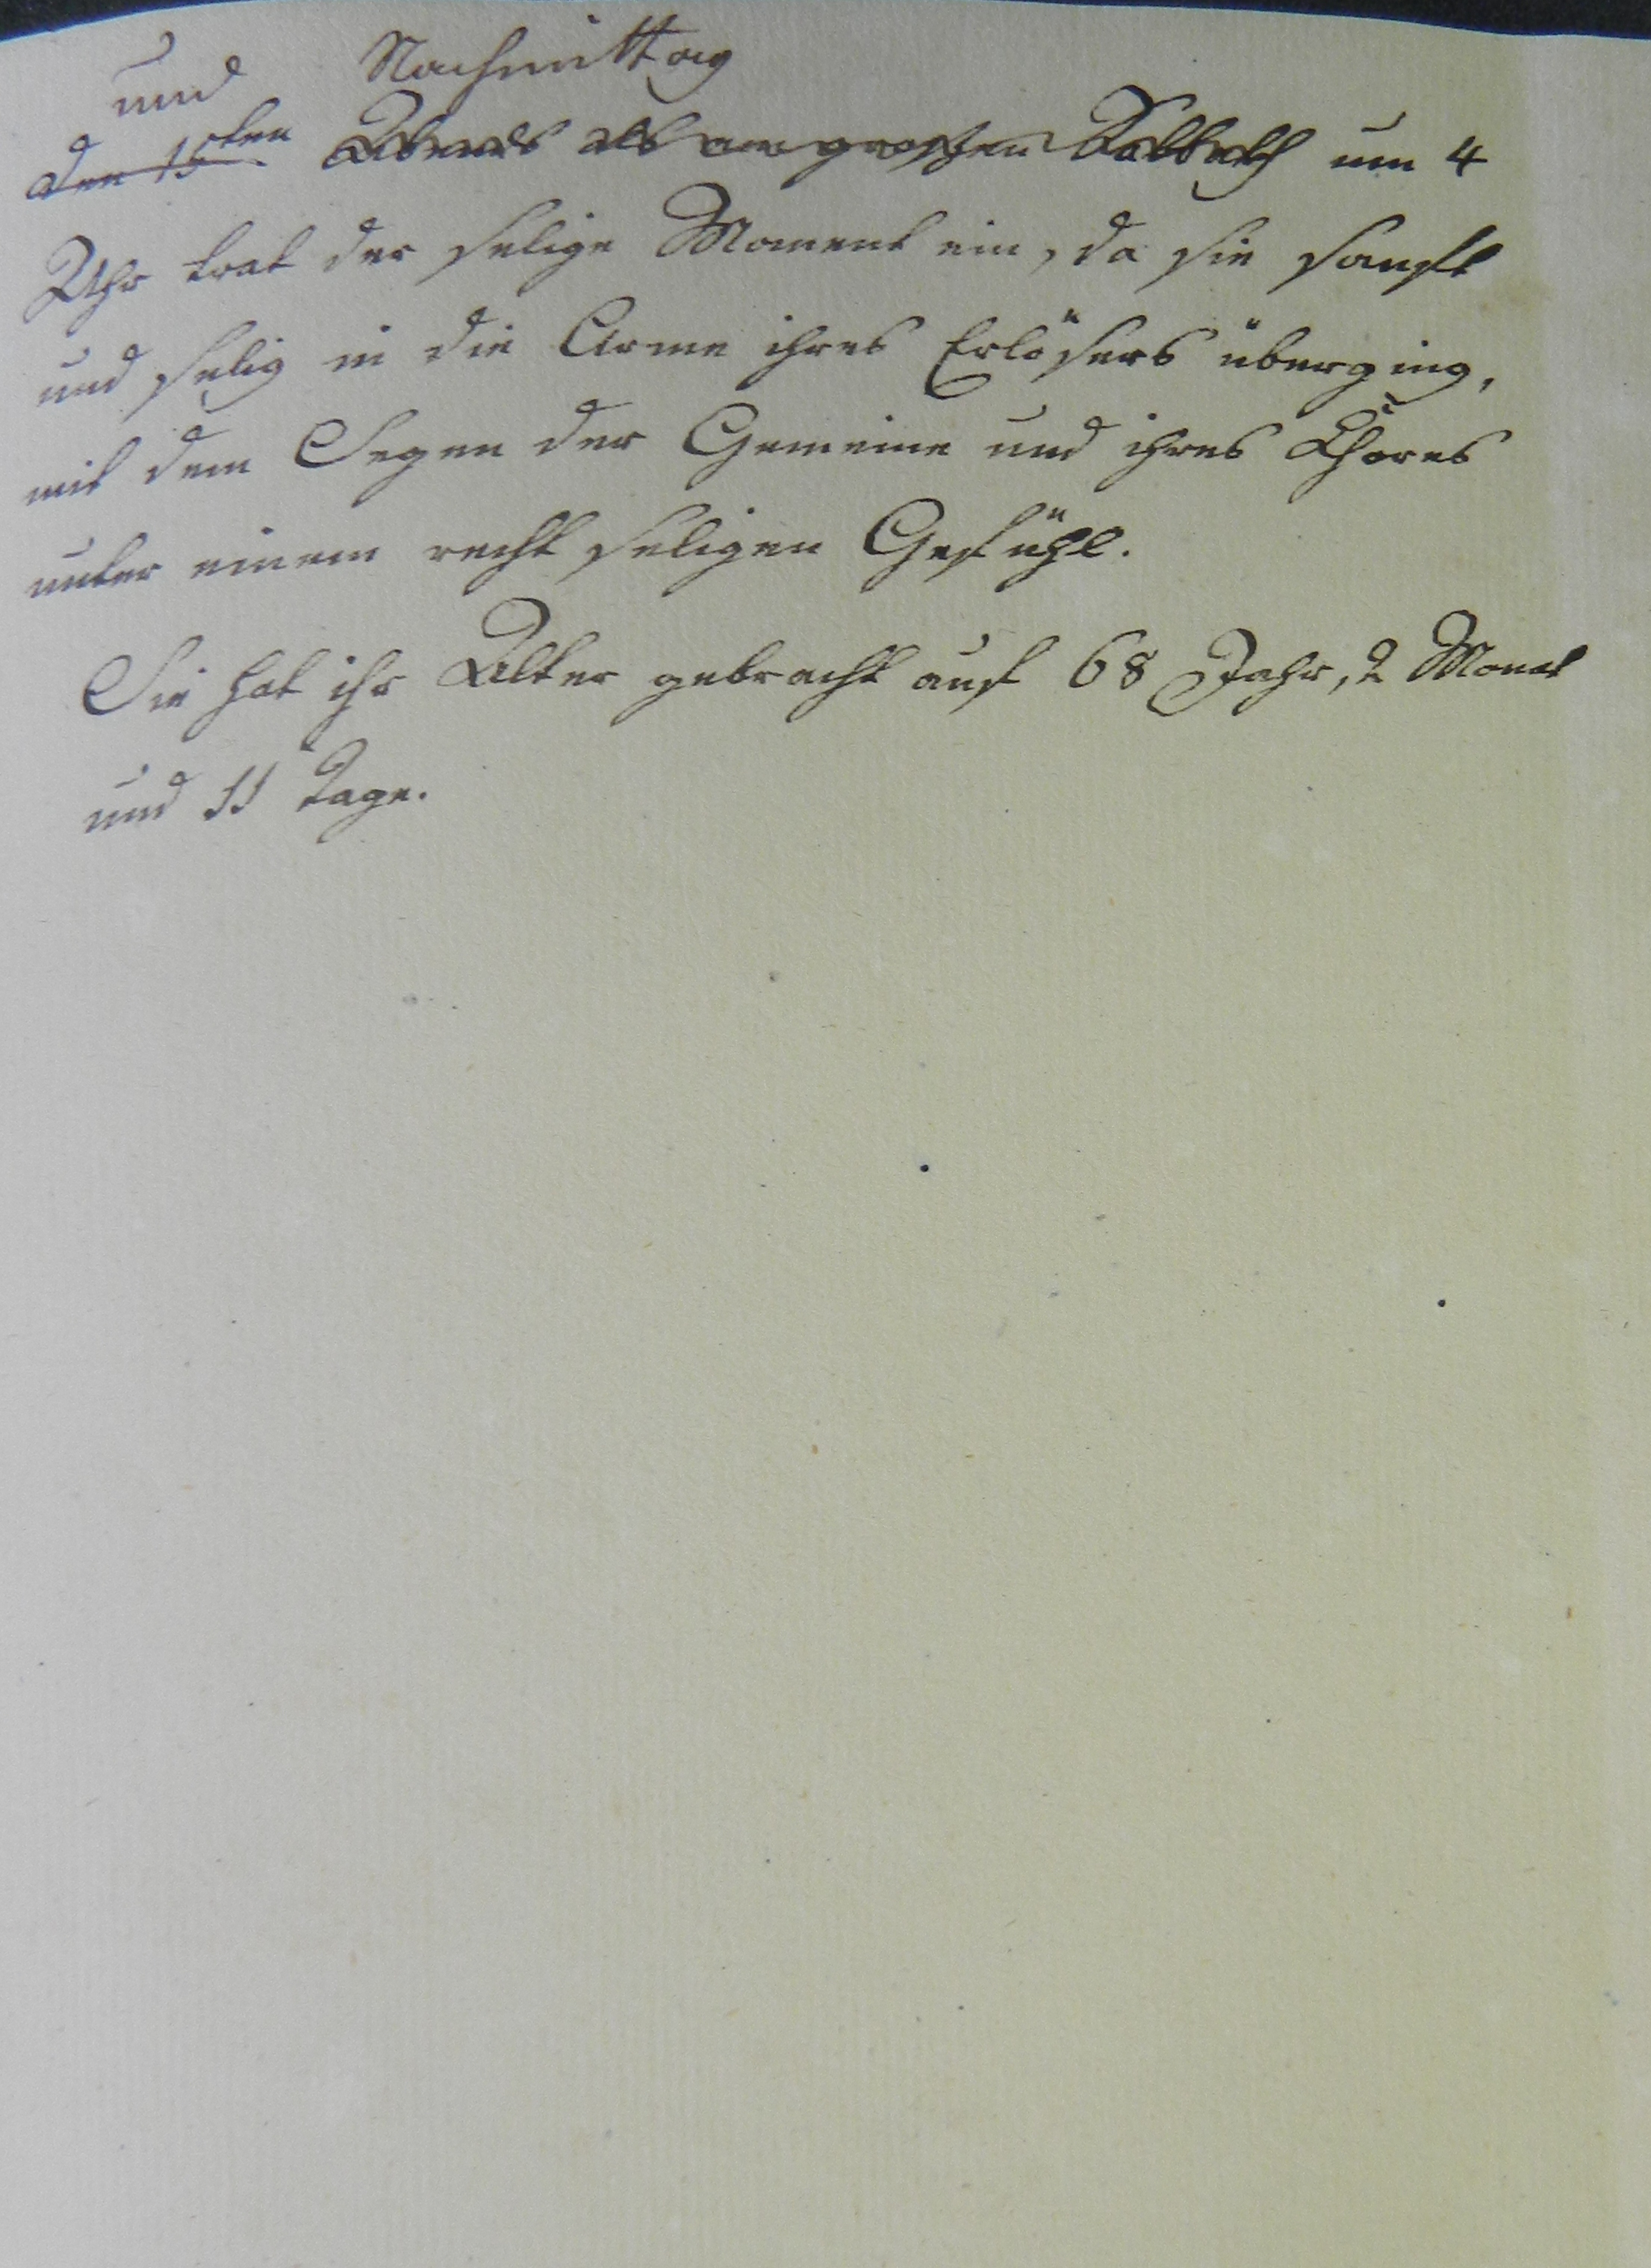 und Nachmittag
den 15ten Abends als am großen Sabbath um 4
Uhr trat der selige Moment ein, da sie sanft
und selig in die Arme ihres Erlösers überging,
mit dem Segen der Gemeine und ihres Chores
unter einem recht seligen Gefühl.
Sie hat ihr Alter gebracht auf 68 Jahr, 2 Monat
und 11 Tage.